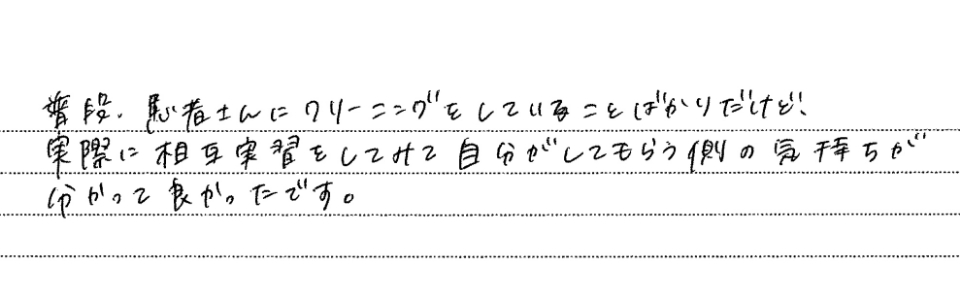 普段、患者さんにクリーニングをしていることばかりだけど、
実際に相互実習をしてみて自分がしてもらう側の気持ちが
分かって良かったです。